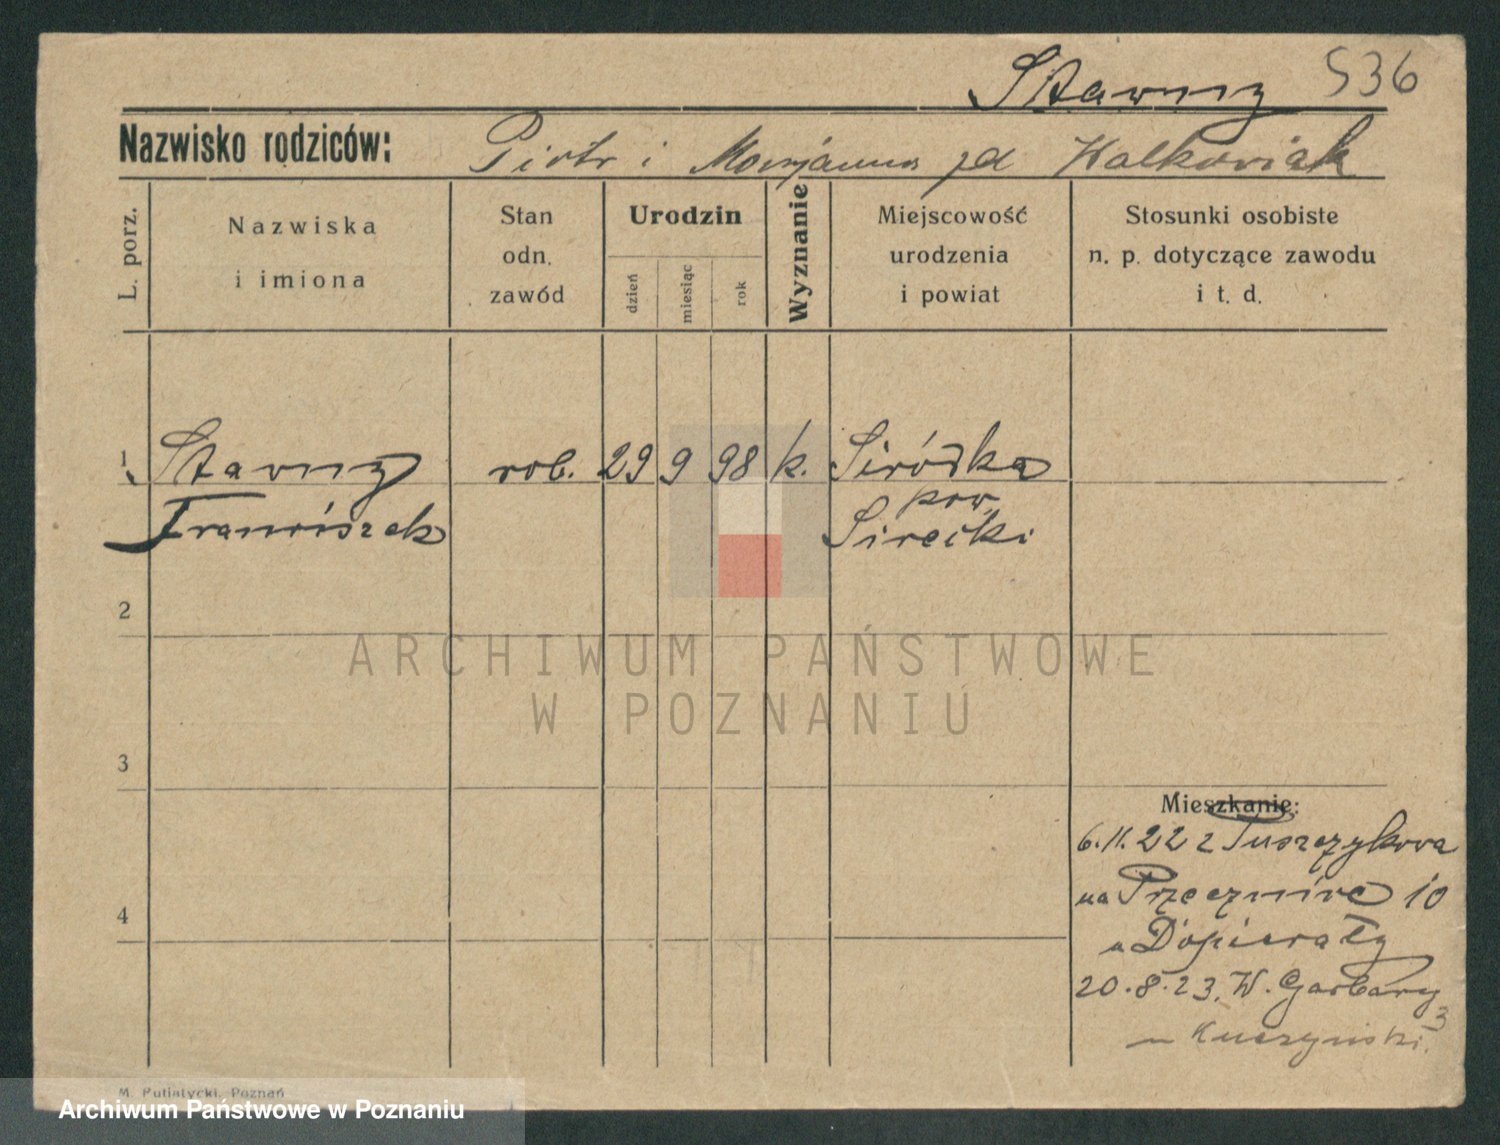 Stawny 536
Nazwisko rodziców: Piotr i Marjanna zd Walkowiak
L. porz.
Nazwiska
i imiona
Stan
odn.
zawód
Urodzin
dzień
miesiąc
rok
Wyznanie
Miejscowość
urodzenia
i powiat
Stosunki osobiste
n. p. dotyczące zawodu
i t. d.
1 Stawny rob. 29 9 98 k. Siródka
pow.
Franciszek Sirecki
2
3
4
Mieszkanie:
6.11.22 z
na 10
u Dopierały
20.8.23. W. Garbary
3
u Kuczyński.
M. Putiatycki, Poznań
ARCHIWUM PAŃSTWOWE
W POZNANIU
Archiwum Państwowe w Poznaniu